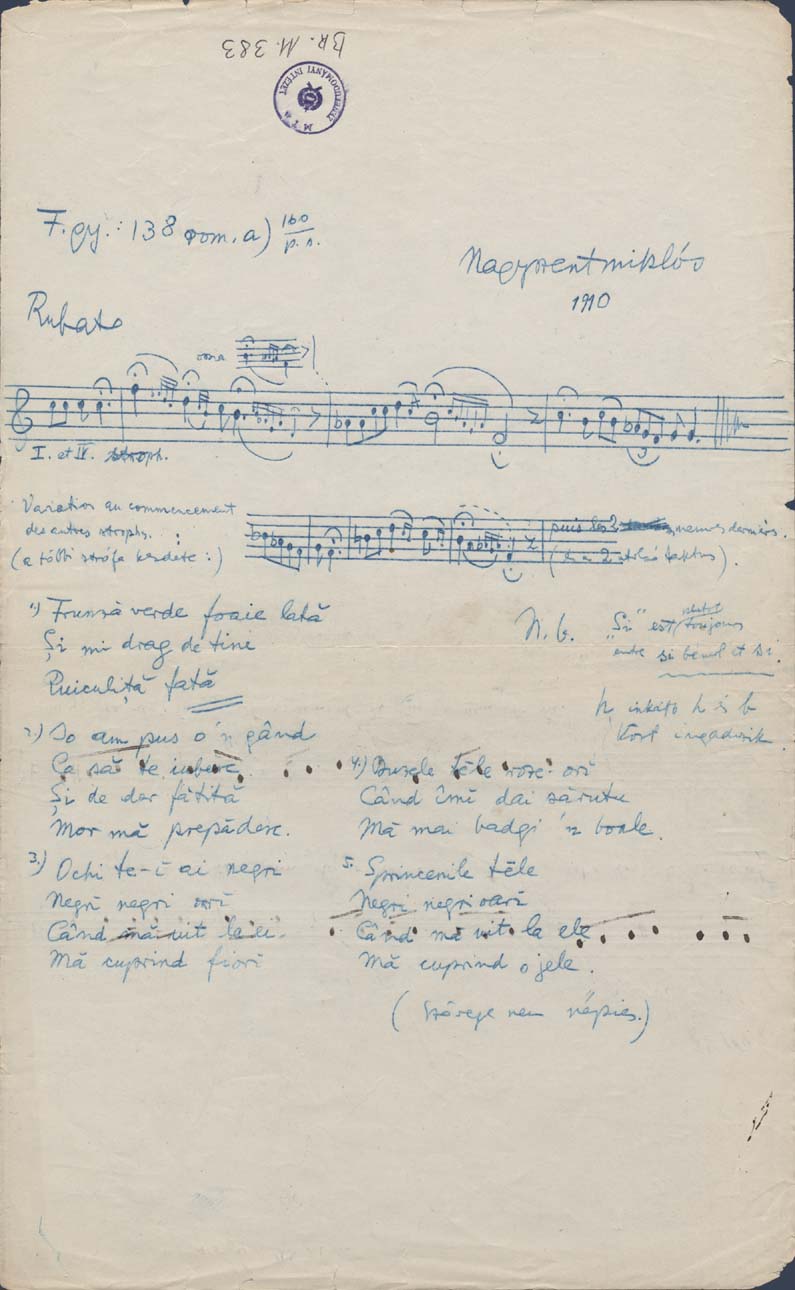 BR. M. 383
F. gy.: 138 rom. a) 160/p. s.
Nagyszentmiklós
1910
Rubato
I. et IV. stroph.
Variation au commencement
des autres strophs. :
(a többi strófa kezdete:)
puis les 2 mesures derniers.
(és a 2 utolsó taktus).
1) Frunză verde foaie lată
Și mi drag de tine
Puiculiță fată
N. b. "Si" est toujours
entre si bémol et si.
♮ inkább h és b
közt ingadozik.
2) Io am pus o'n gând
Ca să te iubesc
Și de dor fătită
Mor mă prepădesc.
3.) Ochi te-i ai negri
Negri negri ori
Când mă uit la ei
Mă cuprind fiori
4.) Buzele tele roze ori
Când îmi dai sărutu
Mă mai badgi 'n boale.
5. Sprincenile tele
Negri negri oari
Când mă uit la ele
Mă cuprind o jele.
(szövege nem népies.)